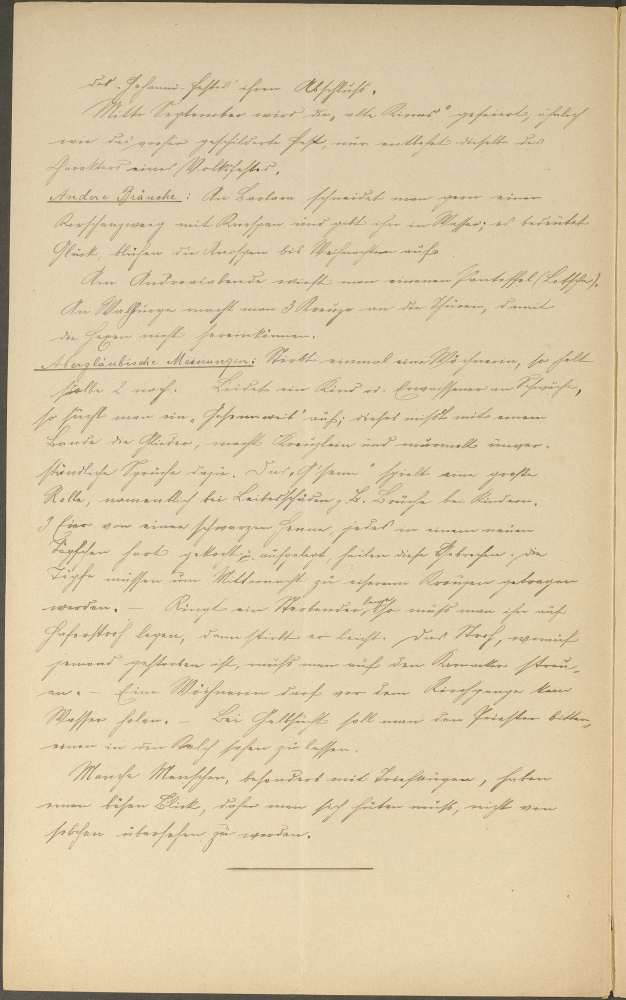 das „Johanni-Festes" ihren Abschluß.
Mitte September wird die „alte Kirwas" gefeiert, ähnlich
wie das vorher geschilderte Fest, nur entbehrt dieselbe des
Charakters eines Volksfestes.
Andere Bräuche: An Barbara schneidet man gern einen
Kirschenzweig mit Knospen und gibt ihn in Wasser; es bedeutet
Glück, blühen die Knospen bis Weihnachten auf.
Am Andreasabende wirft man einen Pantoffel (Letschn).
An Walpurge macht man 3 Kreuze an die Thüren, damit
die Hexen nicht hereinkönnen.
Abergläubische Meinungen: Stirbt einmal eine Wöchnerin, so holt
sie 2 nach. Leidet ein Kind od. Erwachsener an Schwäche,
so sucht man ein „ " auf; dieses mißt mit einem
Bande die Glieder, macht Kreuzlein und murmelt unver-
ständliche Sprüche dazu. Das " spielt eine große
Rolle, namentlich bei Leibesschäden z. B. Brüche bei Kindern.
3 Eier von einer schwarzen Henne, jedes in einem neuen
Töpfchen hart gekocht u. aufgelegt, heilen diese Gebrechen; die
Töpfe müssen um Mitternacht zu eisernem Kreuzen getragen
werden. — Ringt ein Sterbender lange, so muß man ihn auf
Haferstroh legen, dann stirbt er leicht. Das Stroh, worauf
jemand gestorben ist, muß man auf den streu-
en. — Eine Wöchnerin darf vor dem Kirchgange kein
Wasser holen. — Bei Gelbsucht soll man den Priester bitten,
einen in den Kelch sehen zu lassen.
Manche Menschen, besonders mit , haben
einen bösen Blick, daher man sich hüten muß, nicht von
solchen übersehen zu werden.